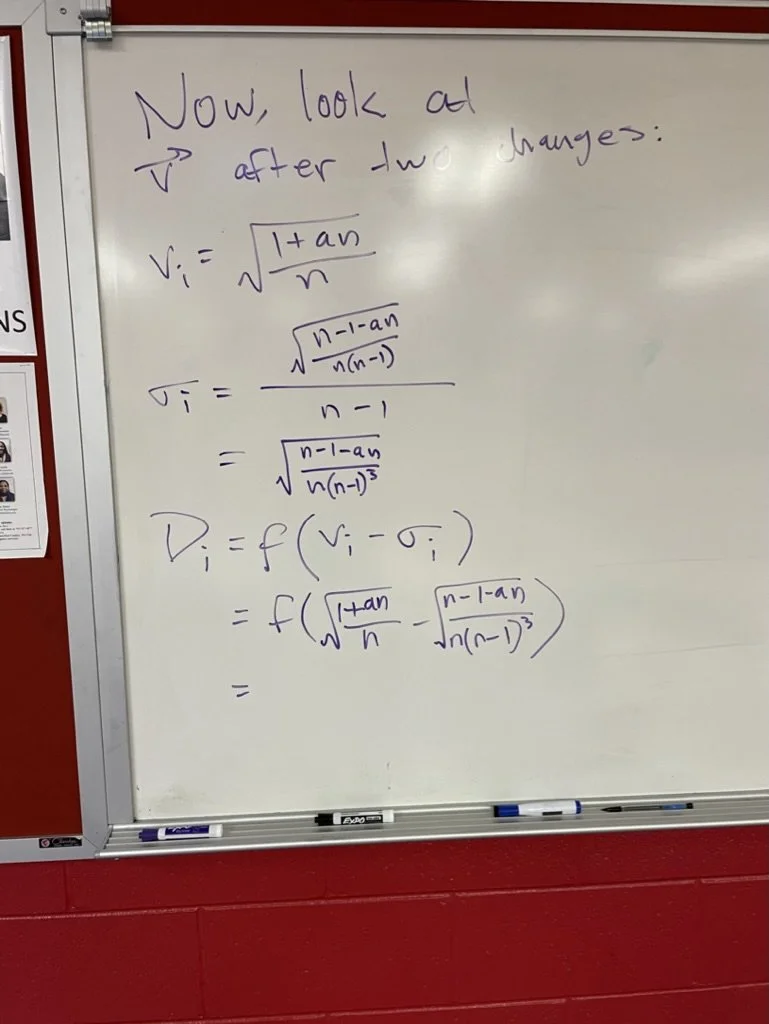 Now, look at
v⃗ after two changes:
vᵢ = √((1+an)/n)
σᵢ = √((n-1-an)/(n(n-1))) / (n-1)
= √((n-1-an)/(n(n-1)³))
Dᵢ = f(vᵢ - σᵢ)
= f(√((1+an)/n) - √((n-1-an)/(n(n-1)³)))
=
NS
EXPO